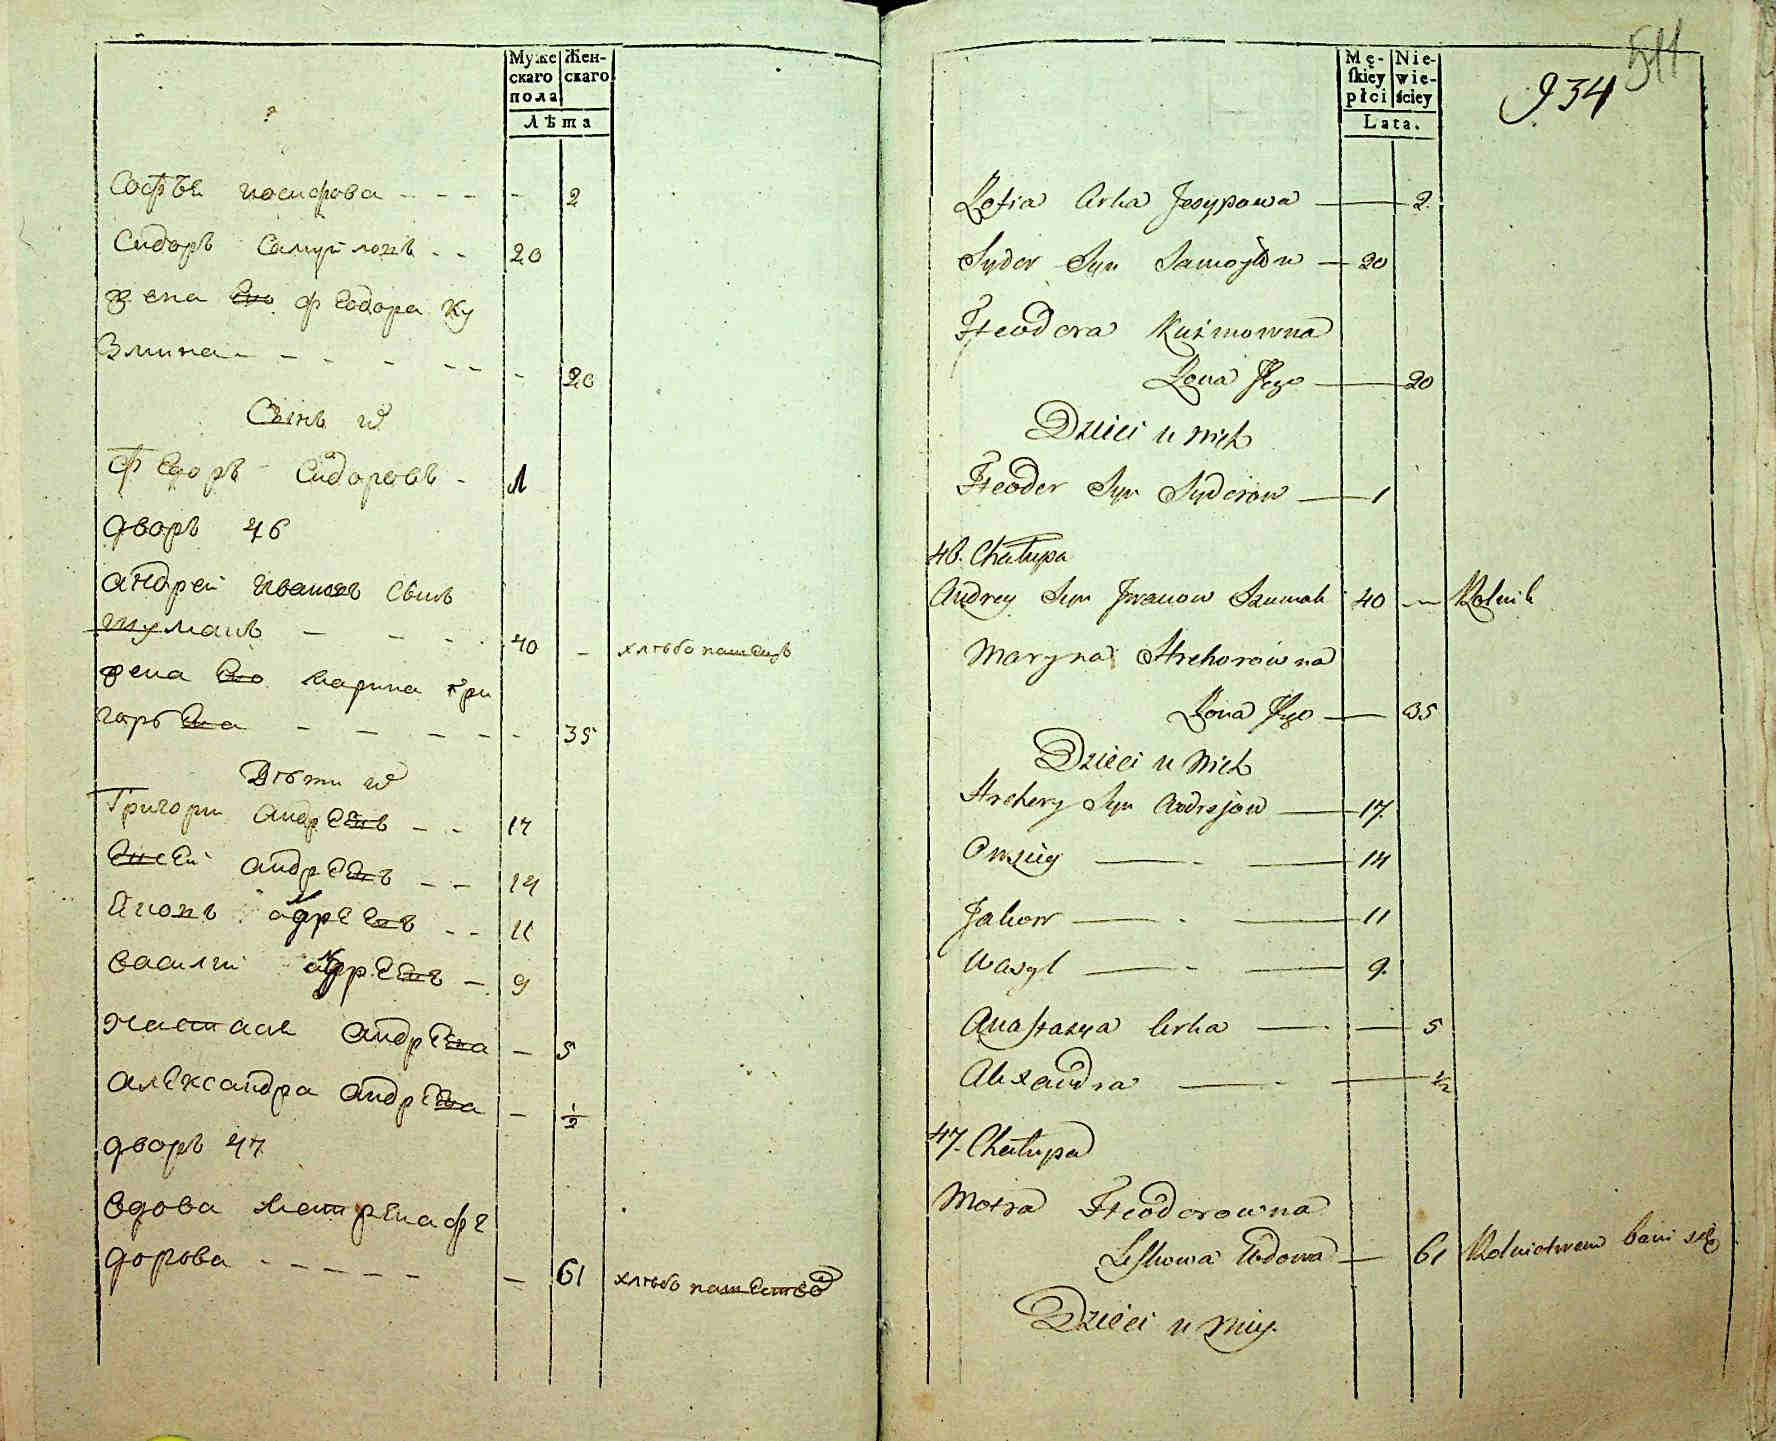 Муже
скаго
пола
Жен-
скаго
Лѣта
Софъя иосифова - - - - 2
Сидоръ Самуйловъ - - 20
жена Его Федора Ку
Змина - - - - - - - 20
Сынъ и
Федоръ Сидоровъ - 1
дворъ 46
андрей Ивановъ Сынъ
шуманъ - - - - 40 - хлѣбопашецъ
жена Его марина Гри
горьева - - - - - - 35
Дѣти и
Григори андреевъ - - 17
андреевъ - - 14
Яковъ адреевъ - - 11
василии адреевъ - 9
настася андреева - 5
александра андреева - 1/2
дворъ 47
вдова матрена фе
дорова - - - - - - 61 хлѣбопашество
511
934
Mę-
skiey
płci
Nie-
wie-
ściey
Lata.
Zofia Crka Jesypowa — 2
Syder Syn Samoyłow — 20
Fteodora Kuźmowna
Żona Jego — 20
Dzieci u nich
Fteoder Syn Syderow — 1
46. Chałupa
Andrey Syn Jwanow Szumak 40 — Rolnik
Maryna Hrehorowna
Żona Jego — 35
Dzieci u nich
Hrehory Syn Andrejow — 17.
— - — 14
Jakow — - — 11
Wasyl — - — 9.
Anastazya Crka — - — 5
Alexandra — - — 1/2
47. Chałupa
Motra Fteodorowna
Wdowa — 61 Rolnictwem bawi się
Dzieci u niey.